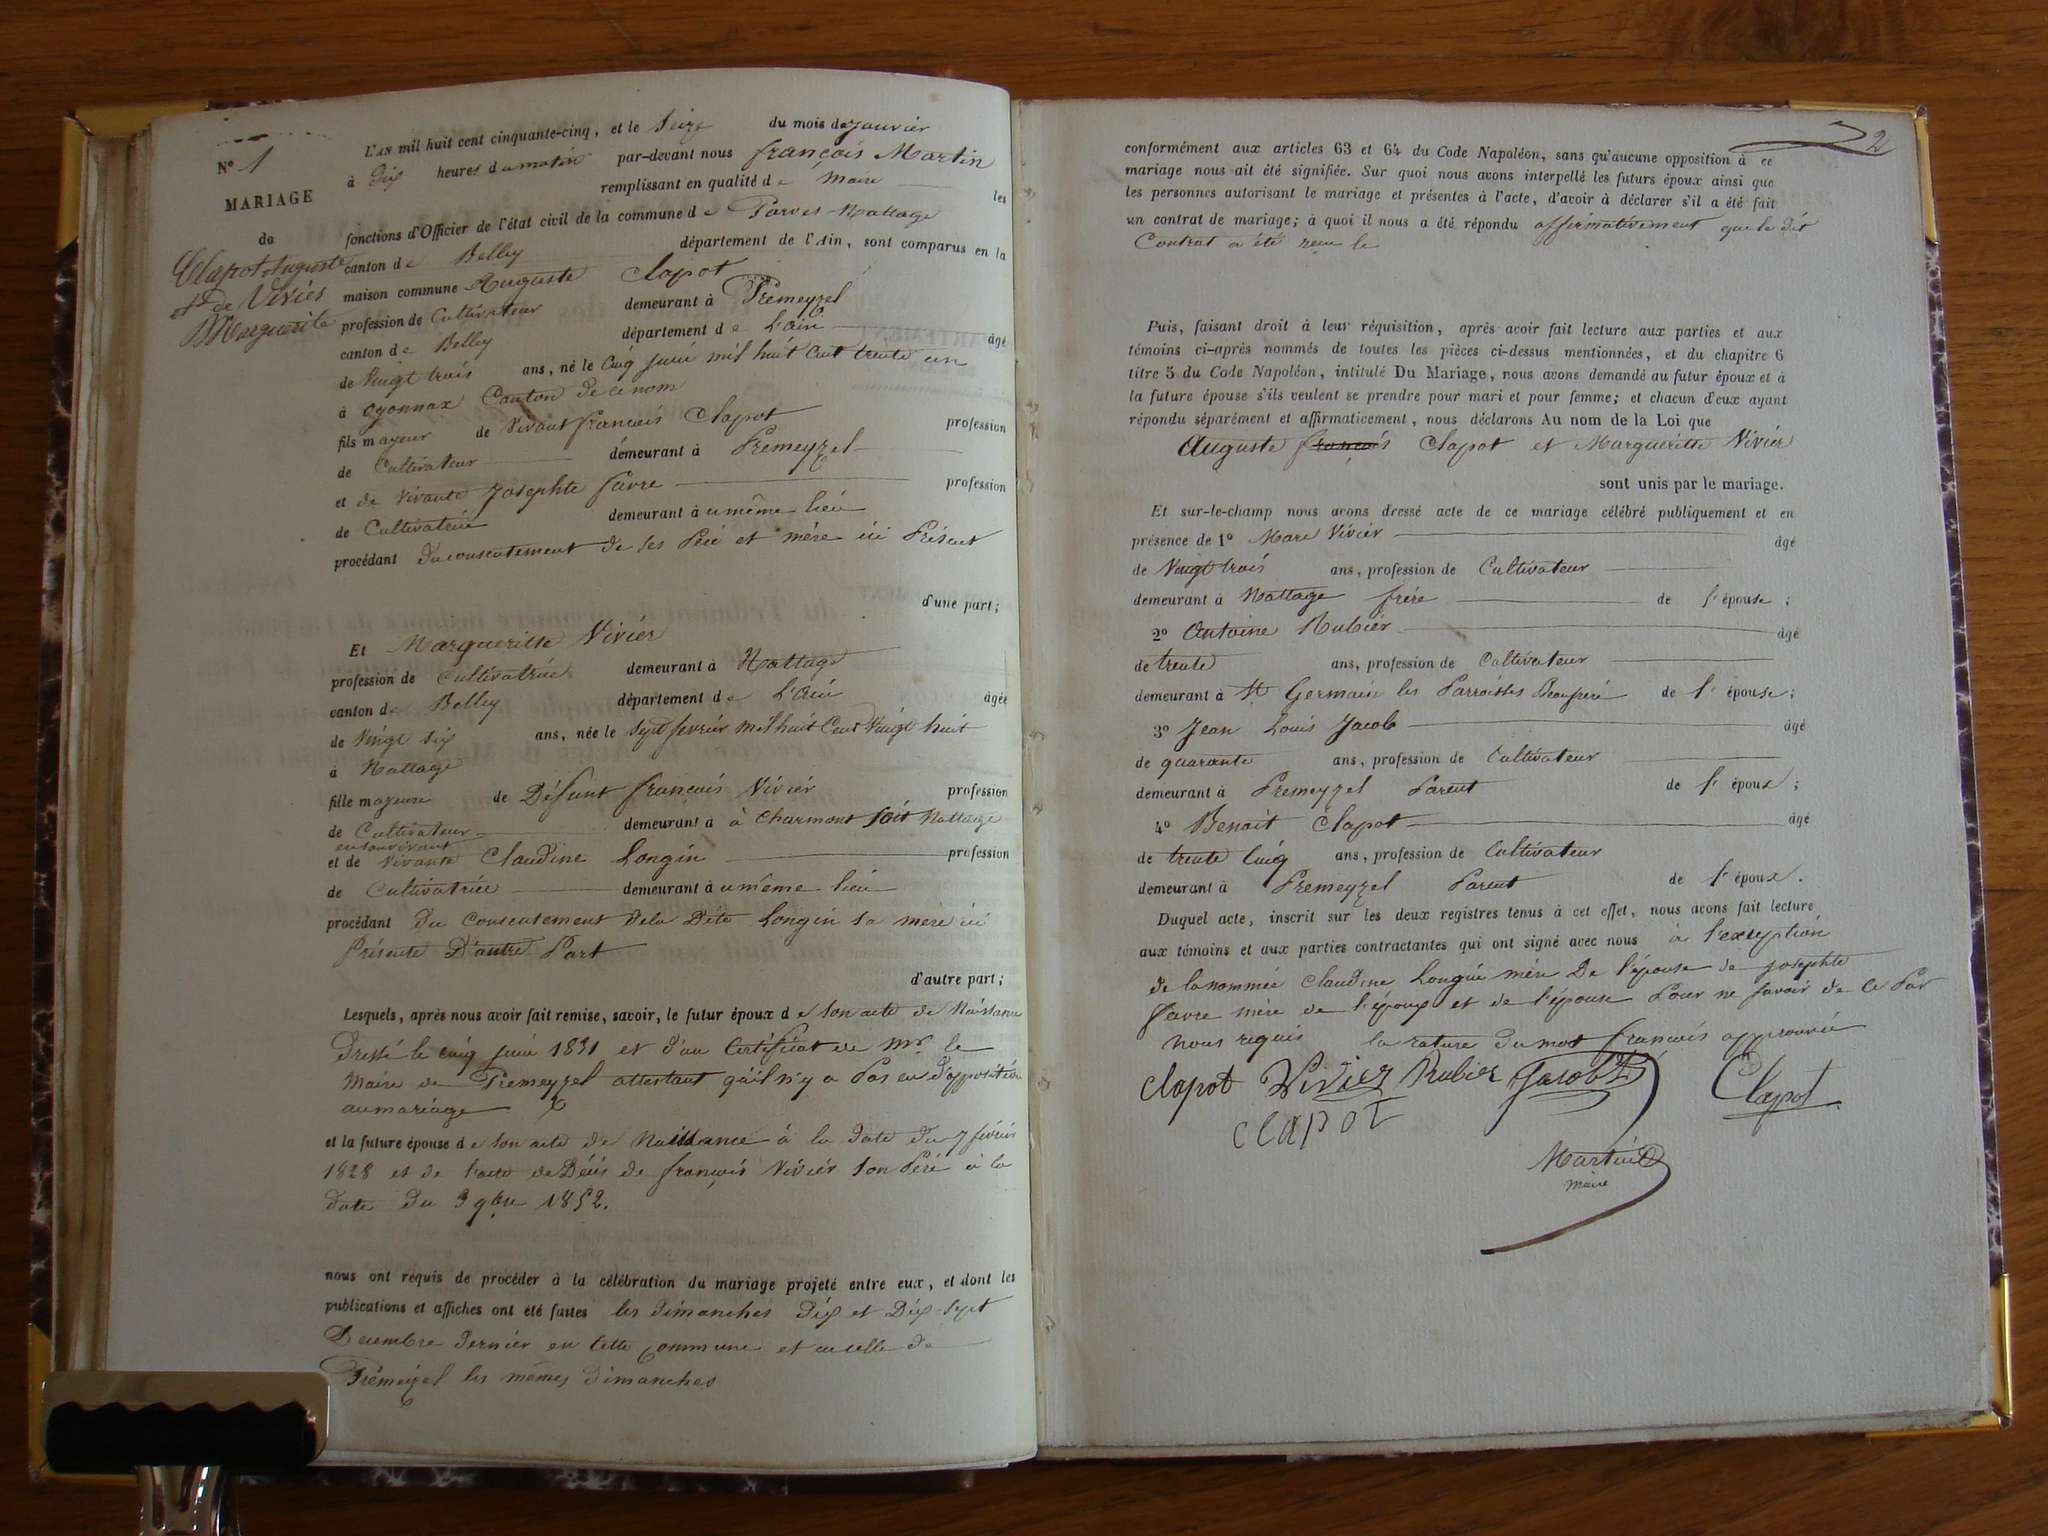 N° 1
MARIAGE
de
Clapot Auguste
et de Vivier
Marguerite
L'AN mil huit cent cinquante-cinq, et le Seize du mois de Janvier
à dix heures du matin par-devant nous françois Martin
remplissant en qualité de Maire les
fonctions d'Officier de l'état civil de la commune de Parves-Nattage
canton de Belley département de l'Ain, sont comparus en la
maison commune Auguste Clapot
profession de Cultivateur demeurant à Prémeyzel
canton de Belley département de L'ain âgé
de Vingt trois ans, né le Cinq juin mil huit Cent trente un
à oyonnax Canton de ce nom
fils mayeur de Vivant françois Clapot profession
de Cultivateur demeurant à Prémeyzel
et de Vivante Josephte favre profession
de Cultivatrice demeurant à u même lieu
procédant du consentement de ses Péré et mére ici Présent
d'une part;
Et Margueritte Vivier
profession de Cultivatrice demeurant à Nattage
canton de Belley département de L'Ain âgée
de Vingt six ans, née le Sept fevrier mil huit Cent Vingt huit
à Nattage
fille mayeure de Défunt françois Vivier profession
de Cultivateur demeurant à à Charmont soit Nattage
en souvivant
et de Vivante Claudine Longin profession
de Cultivatrice demeurant à u même lieu
procédant du Consentement dela Dite Longin sa mere ici
Présente D'autre Part
d'autre part;
Lesquels, après nous avoir fait remise, savoir, le futur époux de son acte de Naissance
Dressé le cinq juin 1831 et d'un Certificat de Mr le
Maire de Prémeyzel attestant qu'il n'y a Pas eu d'opposition
au mariage
et la future épouse de son acte de Naissance à la date du 7 fevrier
1828 et de l'acte de Décés de françois Vivier son Péré à la
date du 3 9bre 1852.
nous ont requis de procéder à la célébration du mariage projeté entre eux, et dont les
publications et affiches ont été faites les dimanches dix et Dix-sept
Decembre dernier en cette commune et en celle de
Prémeizel les mêmes dimanches
2
conformément aux articles 63 et 64 du Code Napoléon, sans qu'aucune opposition à ce
mariage nous ait été signifiée. Sur quoi nous avons interpellé les futurs époux ainsi que
les personnes autorisant le mariage et présentes à l'acte, d'avoir à déclarer s'il a été fait
un contrat de mariage; à quoi il nous a été répondu affirmativement que le dit
Contrat a été reçu le
Puis, faisant droit à leur réquisition, après avoir fait lecture aux parties et aux
témoins ci-après nommés de toutes les pièces ci-dessus mentionnées, et du chapitre 6
titre 5 du Code Napoléon, intitulé Du Mariage, nous avons demandé au futur époux et à
la future épouse s'ils veulent se prendre pour mari et pour femme; et chacun d'eux ayant
répondu séparément et affirmativement, nous déclarons Au nom de la Loi que
Auguste françois Clapot et Margueritte Vivier
sont unis par le mariage.
Et sur-le-champ nous avons dressé acte de ce mariage célébré publiquement et en
présence de 1° Marc Vivier âgé
de Vingt trois ans, profession de Cultivateur
demeurant à Nattage frére de l'épouse;
2° Antoine Rubier âgé
de trente ans, profession de Cultivateur
demeurant à St Germain les Parroisses Beaufreré de l'épouse;
3° Jean Louis Jacob âgé
de quarante ans, profession de Cultivateur
demeurant à Prémeyzel Parent de l'époux;
4° Benoit Clapot âgé
de trente Cinq ans, profession de Cultivateur
demeurant à Prémeyzel Parent de l'époux.
Duquel acte, inscrit sur les deux registres tenus à cet effet, nous avons fait lecture
aux témoins et aux parties contractantes qui ont signé avec nous à l'exception
de la nommée Claudine Longin mére De l'épouse de josephte
favre mére de l'époux et de l'épouse Pour ne savoir de ce Par
Nous requis la rature du mot françois approuvée
Clapot Vivier Rubier Jacob Clapot
CLAPOT
Martin
Maire